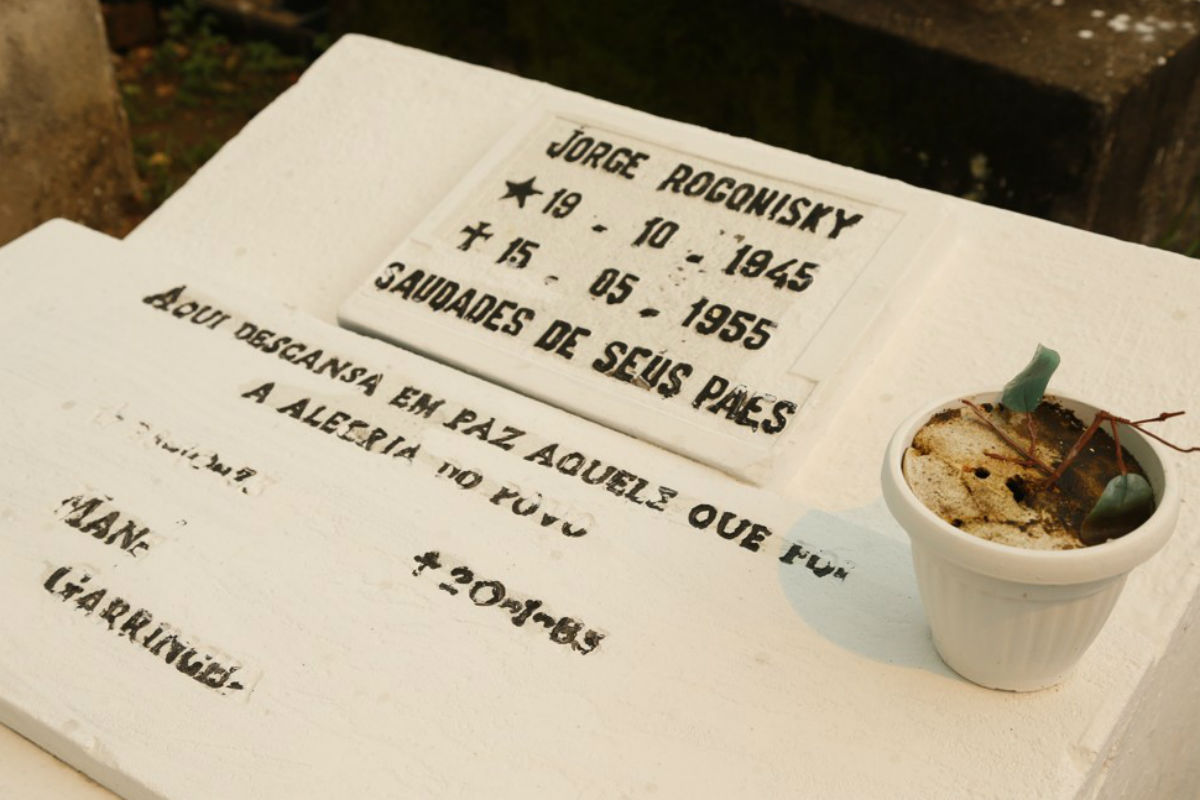 JORGE ROGONISKY
★ 19 - 10 - 1945
✝ 15 - 05 - 1955
SAUDADES DE SEUS PAES
AQUI DESCANSA EM PAZ AQUELE QUE FOI
A ALEGRIA DO POVO
MANE
GARRINCHA
✝ 20-1-83